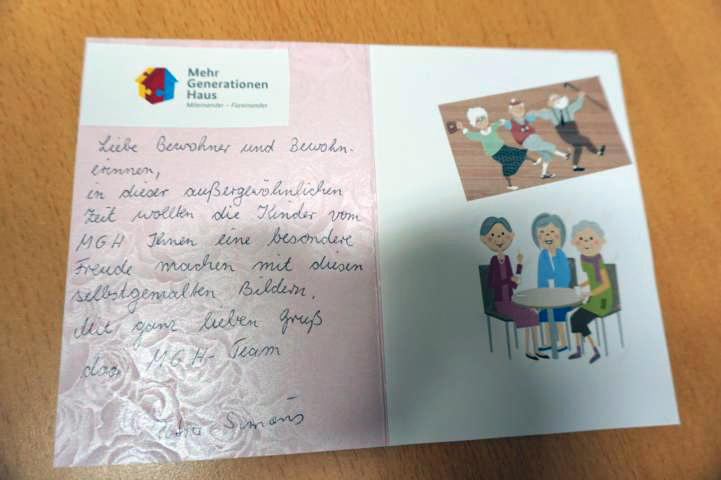 Mehr
Generationen
Haus
Miteinander – Füreinander
Liebe Bewohner und Bewohn-
erinnen,
in dieser außergewöhnlichen
Zeit wollten die Kinder vom
MGH Ihnen eine besondere
Freude machen mit diesen
selbstgemalten Bildern.
Mit ganz lieben Gruß
das MGH-Team
Simons